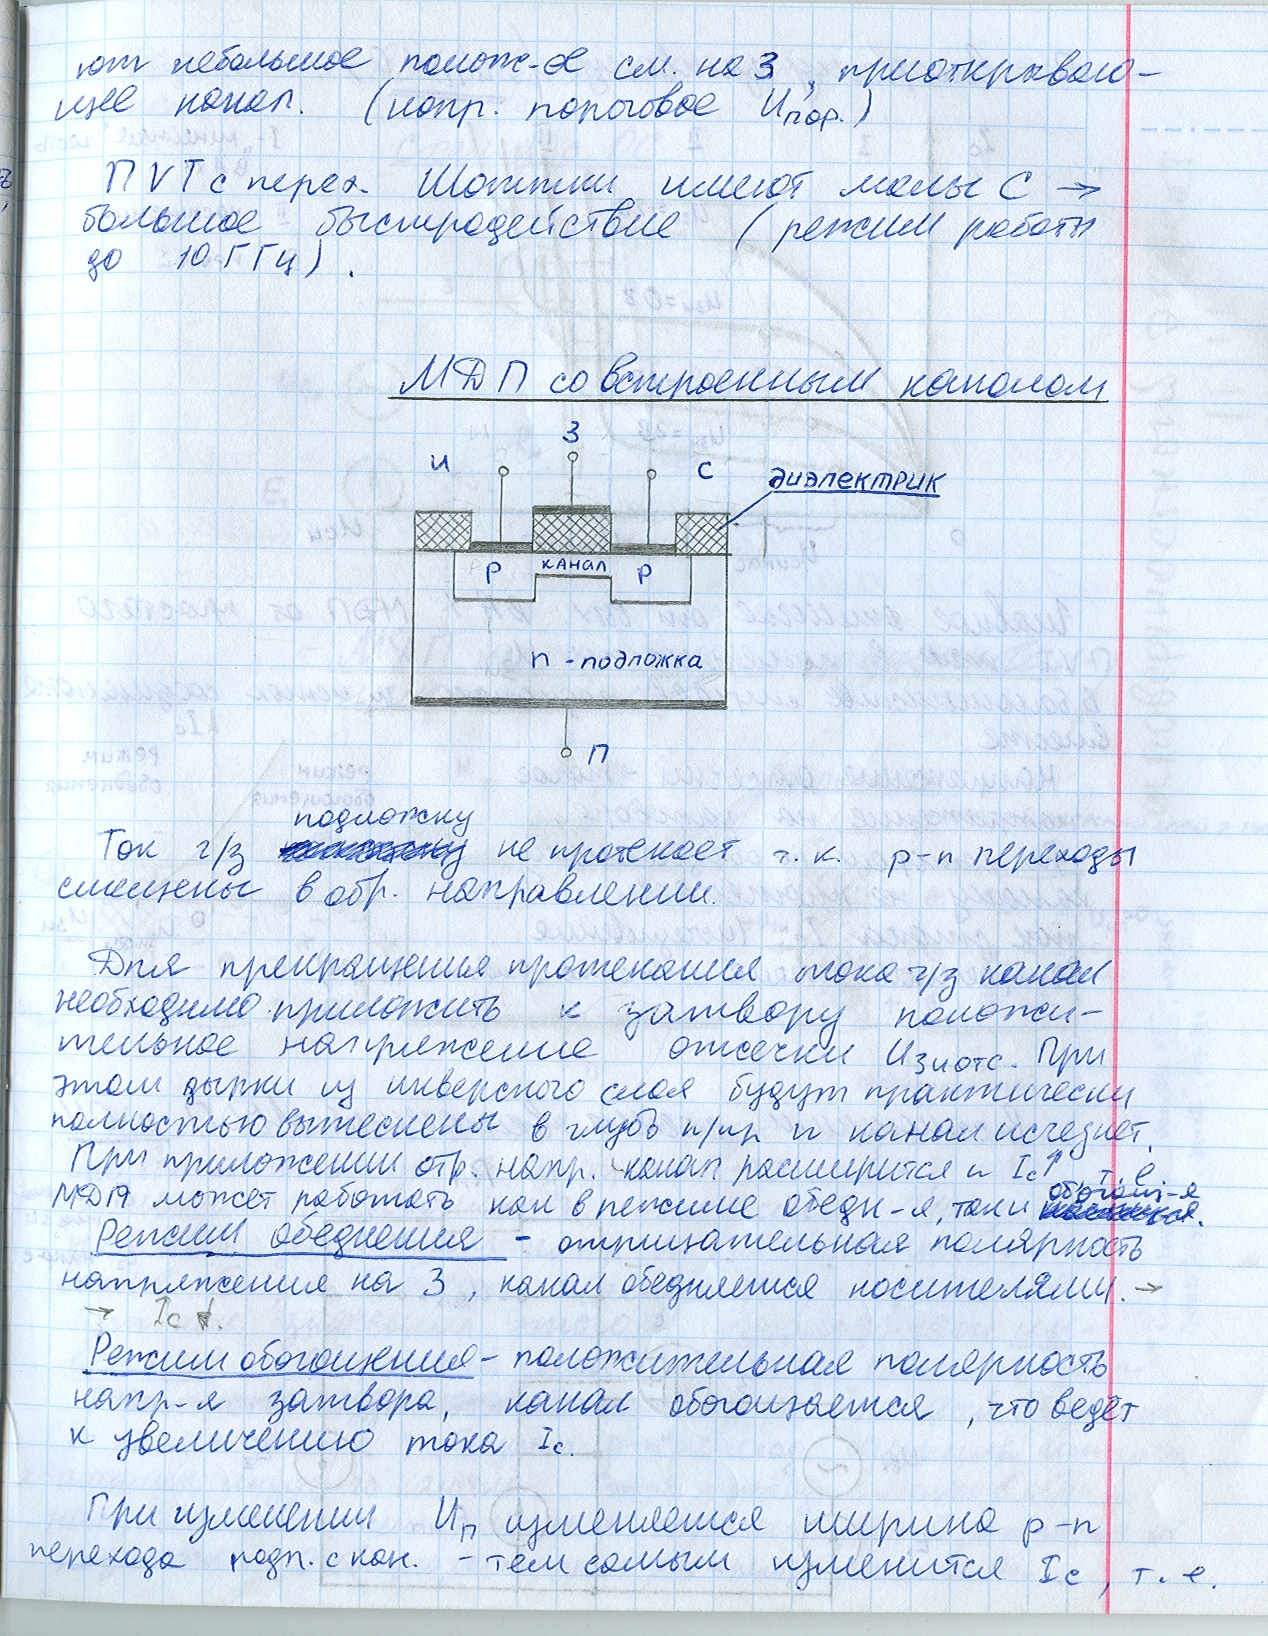 ют небольшое полож-е см. на З, приоткрываю-
щее канал. (напр. пороговое Uпор.)
ПVT с перех. Шоттки имеют малы С →
большое быстродействие (режим работы
до 10 ГГц).
МДП со встроенным каналом
И З С
диэлектрик
p канал p
n - подложка
П
подложку
Ток ч/з не протекает т.к. p-n переходы
смещены в обр. направлении.
Для прекращения протекания тока ч/з канал
необходимо приложить к затвору положи-
тельное напряжение отсечки Uзиотс. При
этом дырки из инверсного слоя будут практически
полностью вытеснены в глубь п/пр и канал исчезнет.
При приложении отр. напр. канал расширится и Ic↑ т.е
МДП может работать как в режиме обедн-я, так и обогащ-я.
Режим обеднения - отрицательная полярность
напряжения на З, канал обедняется носителями. →
→ Ic ↓.
Режим обогащения - положительная полярность
напр-я затвора, канал обогащается, что ведёт
к увеличению тока Ic.
При изменении Uп изменяется ширина p-n
перехода подл. с кан. - тем самым изменится Ic, т.е.